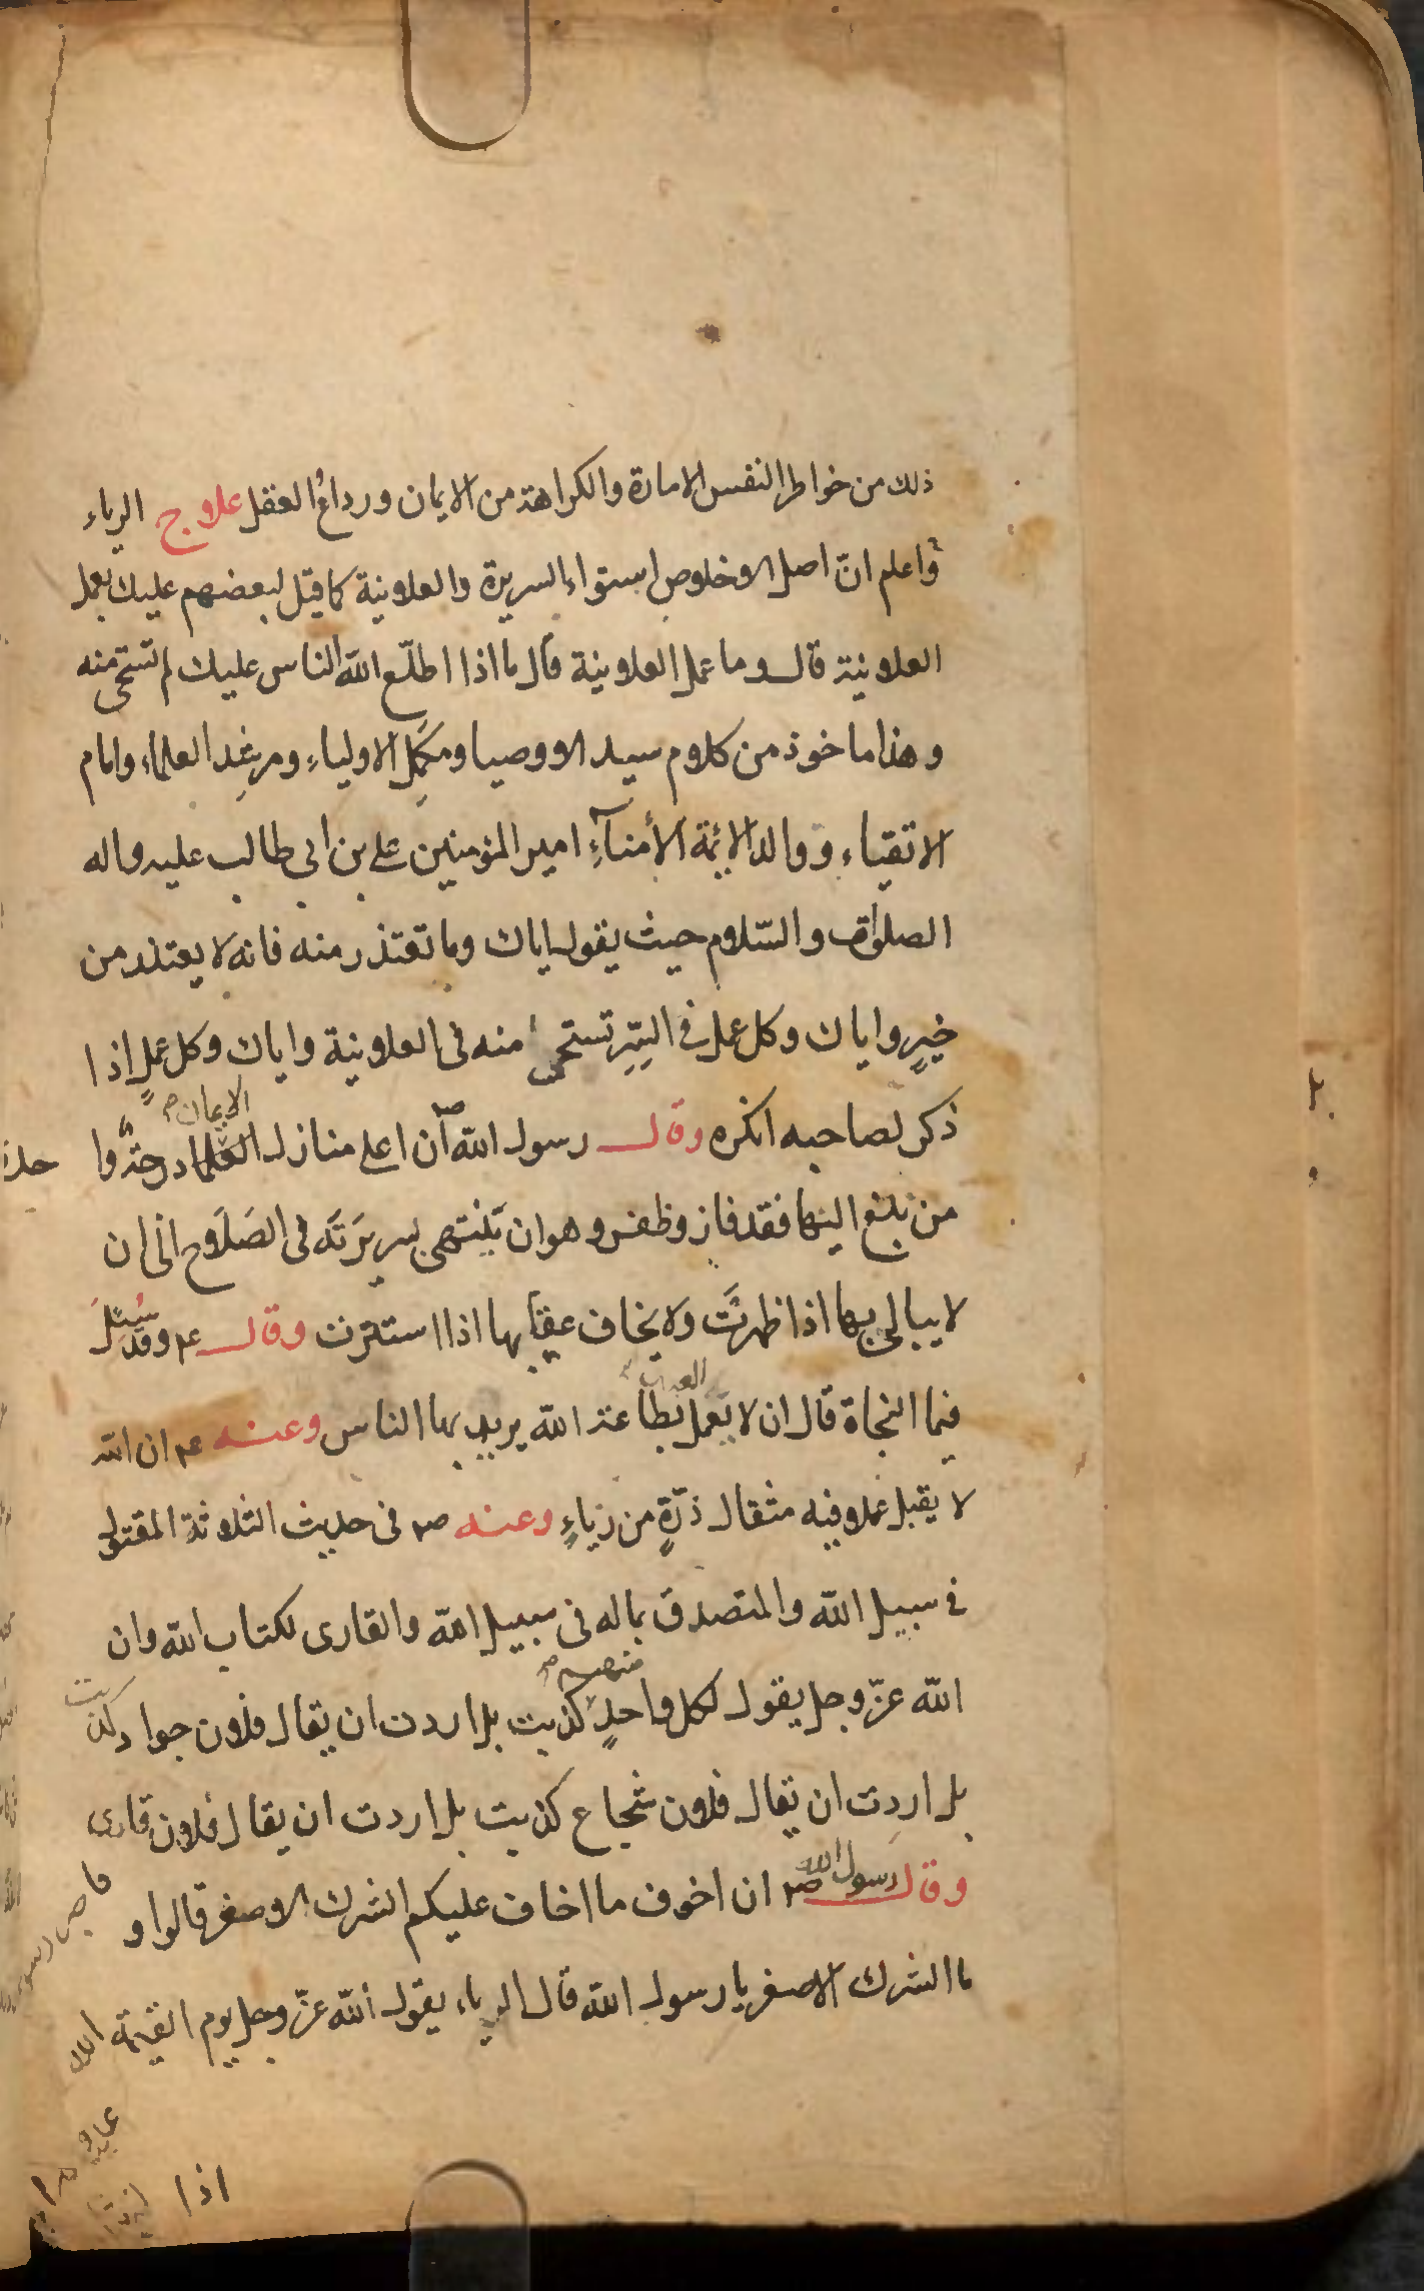 ذلك من خواطر النفس الامارة والكراهة من الايمان ورداعُ العقل علاج الرياء
واعلم انّ اصل الاخلاص استواء السريرة والعلانية كما قيل لبعضهم عليك بعمل
العلانية قال وما عمل العلانية قال ما اذا اطلّع الله الناس عليك لم تستحى منه
وهذا ماخوذ من كلام سيد الاوصيا ومكمِّل الاولياء ومرشد العلماء وامام
الاتقياء ووالد الائمة الأمنآءِ امير المؤمنين على بن ابى طالب عليه واله
الصلوات والسّلام حيث يقول اياك وما تعتذر منه فانه لا يعتذر من
خيرٍ واياك وكل عمل فى السِّرِ تستحى منه فى العلانية واياك وكل عملٍ اذا
ذكر لصاحبه انكره وقال رسول الله ص ان اعلى منازل الايمان درجةً وا حدة
من بلغ اليها فقد فاز وظفر وهو ان يَنتهى بسريرَتَه فى الصَلَاح الى ان
لا يبالى بها اذا ظهرَت ولا يخاف عقابها اذا استترت وقال ع م وقد سُئِلَ
فيما النجاة قال ان لا يعمل العبد بطاعة الله يريد بها الناس وعنه ع م ان الله
لا يقبل عملا فيه مثقال ذرّةٍ من رياءٍ وعنه ص م فى حديث الثلاثة المقتول
فى سبيل الله والمتصدق بماله فى سبيل الله والقارى لكتاب الله وان
الله عزّ وجل يقول لكل واحدٍ منهم كذبت بل اردت ان يقال فلان جواد كذبت
بل اردت ان يقال فلان شجاع كذبت بل اردت ان يقال فلان قارى
وقال رسول الله ص م ان اخوف ما اخاف عليكم الشرك الاصغر قالوا و
ما الشرك الاصغر يا رسول الله قال الرياء يقول الله عزّ وجل يوم القيمة
اذا